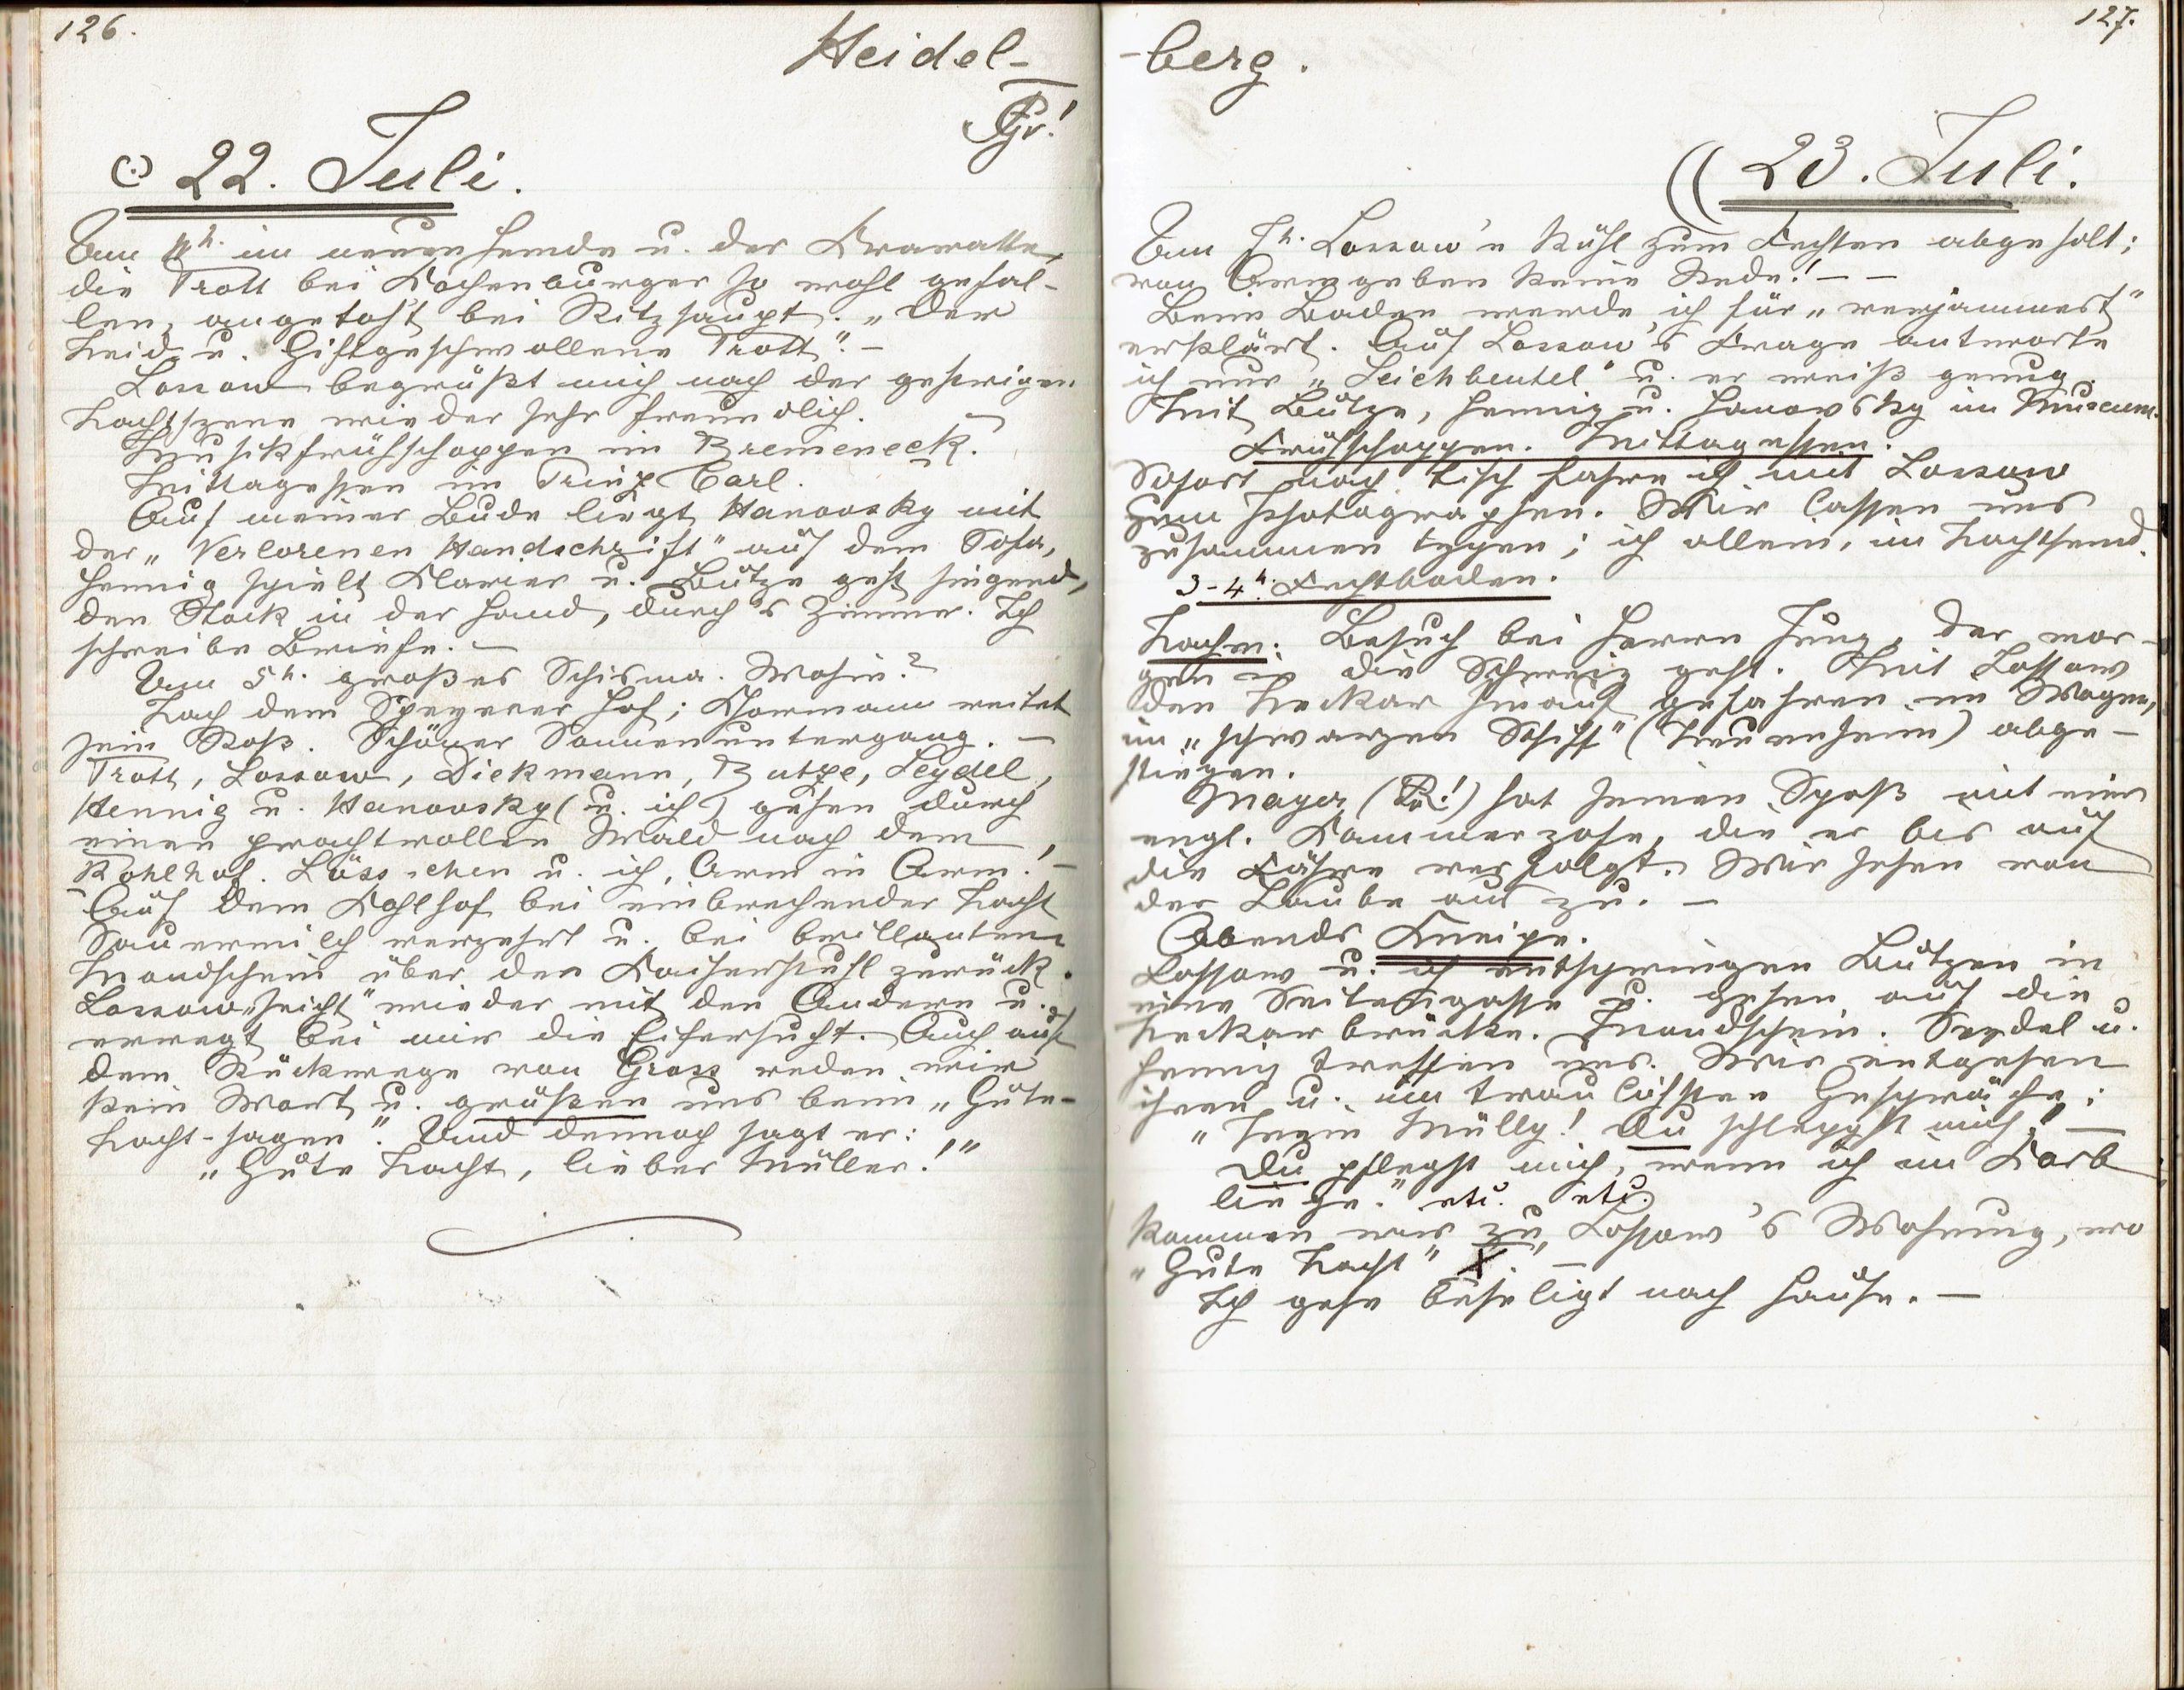 126.
Heidel-
22. Juli.
Um h. im neuen Hemde u. der Krawatte,
die Trott bei Rochenburger so wohl gefal-
len, angetobt bei Ritzhaupt. „Der
Neid- u. Giftgeschwollene Trott". –
Lossow begrüßt mich nach der gestrigen
Nachtszene wieder sehr freundlich. –
Musikfrühschoppen im Bremeneck.
Mittagessen im Prinz Carl.
Auf meiner Bude liegt Hanovsky mit
der „Verlorenen Handschrift" auf dem Sofa,
Hennig spielt Klavier u. Butze geht singend,
den Stock in der Hand, durch's Zimmer. Ich
schreibe Briefe. –
Um 5h. großes Schisma. Wohin?
Nach dem Speyerer Hof; Thormann reitet
sein Roß. Schöner Sonnenuntergang. –
Trott, Lossow, Diekmann, Butze, Seydel,
Hennig u. Hanovsky (u. ich) gehen durch
einen prachtvollen Wald nach dem
Kohlhof. Löss'chen u. ich, Arm in Arm! –
Auf dem Kohlhof bei einbrechender Nacht
Sauermilch verzehrt u. bei brillantem
Mondschein über den Kaiserstuhl zurück.
Lossow „seicht" wieder mit den Andern u.
erregt bei mir die Eifersucht. Auch auf
dem Rückwege von Gross reden wir
kein Wort u. grüßen uns beim „Gute-
Nacht-sagen". Und dennoch sagt er:
„Gute Nacht, lieber Müller!"
127.
-berg.
23. Juli.
Um 7h. Lossow'n kühl zum Fechten abgeholt;
von Armgeben keine Rede! – –
Beim Baden werde ich für „verjammert"
erklärt. Auf Lossow's Frage antworte
ich nur „Seichbeutel" u. er weiß genug.
Mit Butze, Hennig u. Hanovsky im Museum.
Frühschoppen. Mittagessen.
Sofort nach Tisch fahre ich mit Lossow
zum Photographen. Wir lassen uns
zusammen typen; ich allein, im Nachthemd.
3-4h. Fechtboden.
Nachm: Besuch bei Herrn Jung, der mor-
gen in die Schweiz geht. Mit Lossow
den Neckar hinauf gefahren im Wagen,
im „schwarzen Schiff" (Neuenheim) abge-
stiegen.
Mayer hat seinen Spaß mit einer
engl. Kammerzofe, die er bis auf
die Fähre verfolgt. Wir sehen von
der Laube aus zu. –
Abends Kneipe.
Lossow u. ich entspringen Butzen in
eine Seitengasse u. gehen auf die
Neckarbrücke. Mondschein. Seydel u.
Hennig treffen uns. Wir entgehen
ihnen u. im traulichsten Gespräche:
„Mein Mülly! Du schleppst mich," –
Du pflegst mich, wenn ich im Korb
liege." etc. etc.
kommen wir zu Lossow's Wohnung, wo
„Gute Nacht" X. –
Ich gehe beseligt nach Hause. –